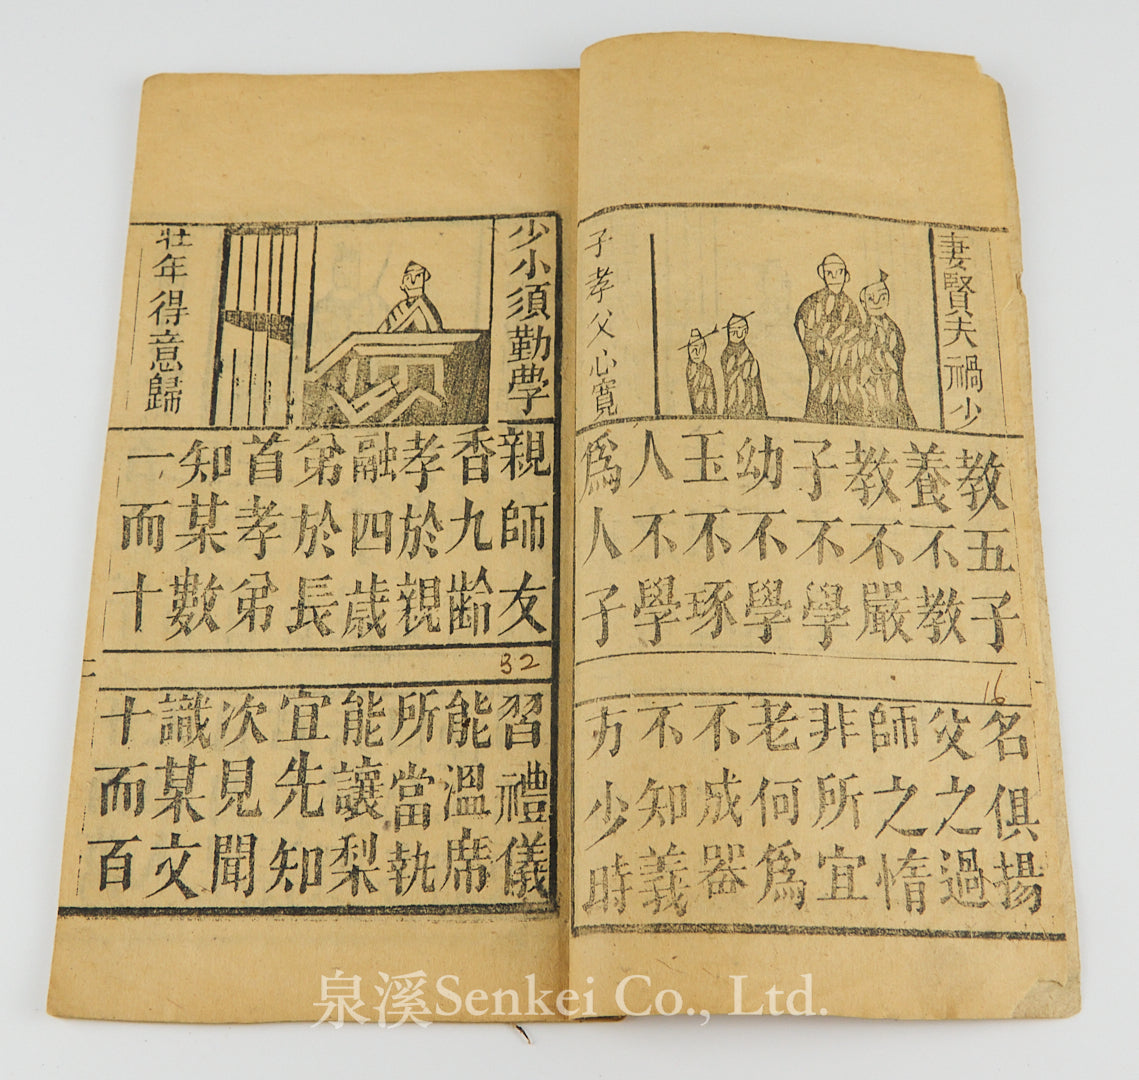 妻賢夫禍少
子孝父心寬
教五子
名俱揚
養不教
父之過
教不嚴
師之惰
子不學
非所宜
幼不學
老何爲
玉不琢
不成器
人不學
不知義
爲人子
方少時
16
少小須勤學
壯年得意歸
親師友
習禮儀
香九齡
能溫席
孝於親
所當執
融四歲
能讓梨
弟於長
宜先知
首孝弟
次見聞
知某數
識某文
一而十
十而百
32
泉溪Senkei Co., Ltd.